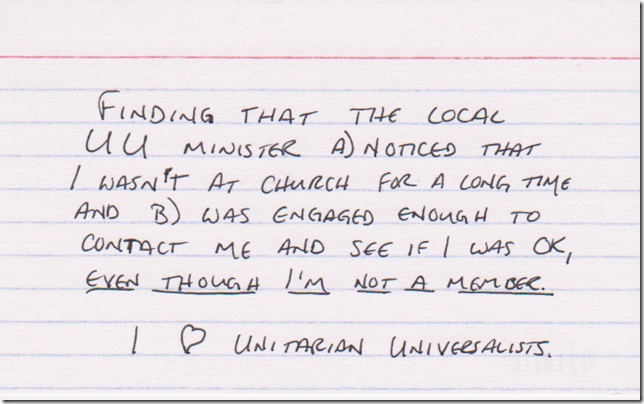 FINDING THAT THE LOCAL
UU MINISTER A) NOTICED THAT
I WASN'T AT CHURCH FOR A LONG TIME
AND B) WAS ENGAGED ENOUGH TO
CONTACT ME AND SEE IF I WAS OK,
EVEN THOUGH I'M NOT A MEMBER.
I ♡ UNITARIAN UNIVERSALISTS.